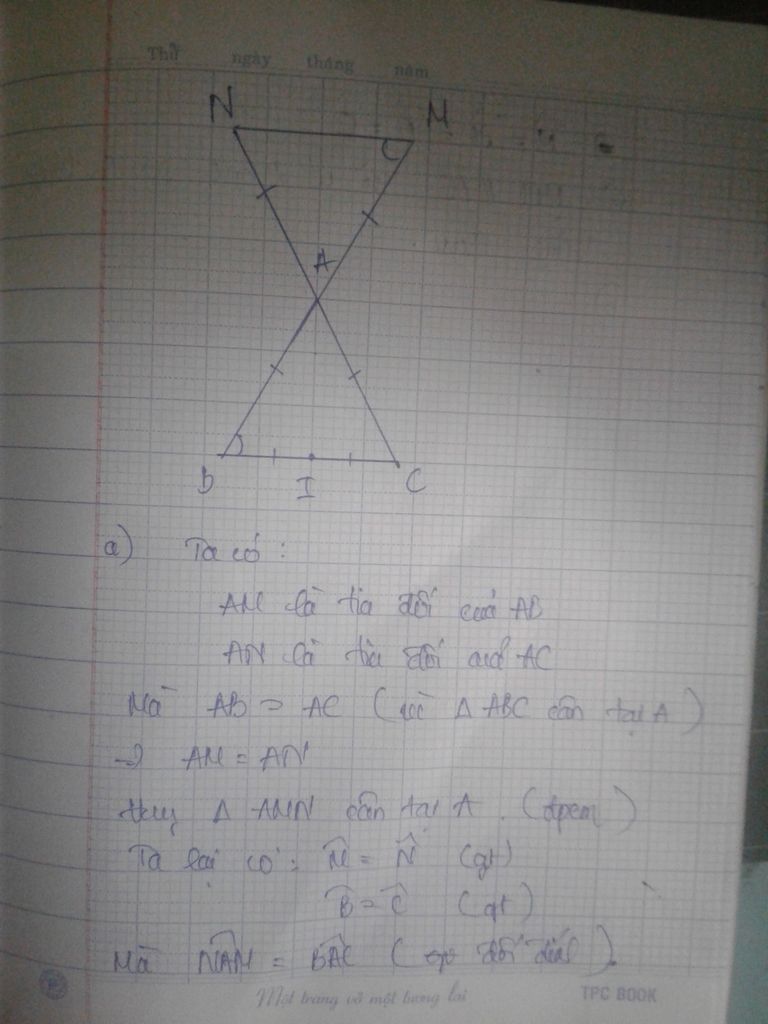 Thứ ngày tháng năm
N M
A
B I C
a) Ta có :
AM là tia đối của AB
AN là tia đối của AC
Mà AB = AC ( vì Δ ABC cân tại A )
→ AM = AN
Hay Δ AMN cân tại A . (đpcm)
Ta lại có : M̂ = N̂ (gt)
B̂ = Ĉ (gt)
Mà N̂AM = B̂AC ( đối đỉnh ).
Một trang vở một tương lai TPC BOOK